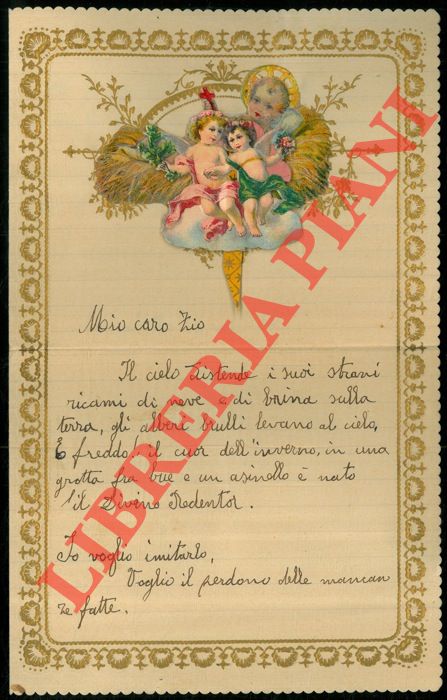 Mio caro Zio
Il cielo distende i suoi strani
ricami di neve e di brina sulla
terra, gli alberi brulli levano al cielo,
È freddo! il cuor dell'inverno, in una
grotta fra bue e un asinello è nato
il Divino Redentor.
Io voglio imitarlo,
Voglio il perdono delle mancan
ze fatte.
LIBRERIA PIANI